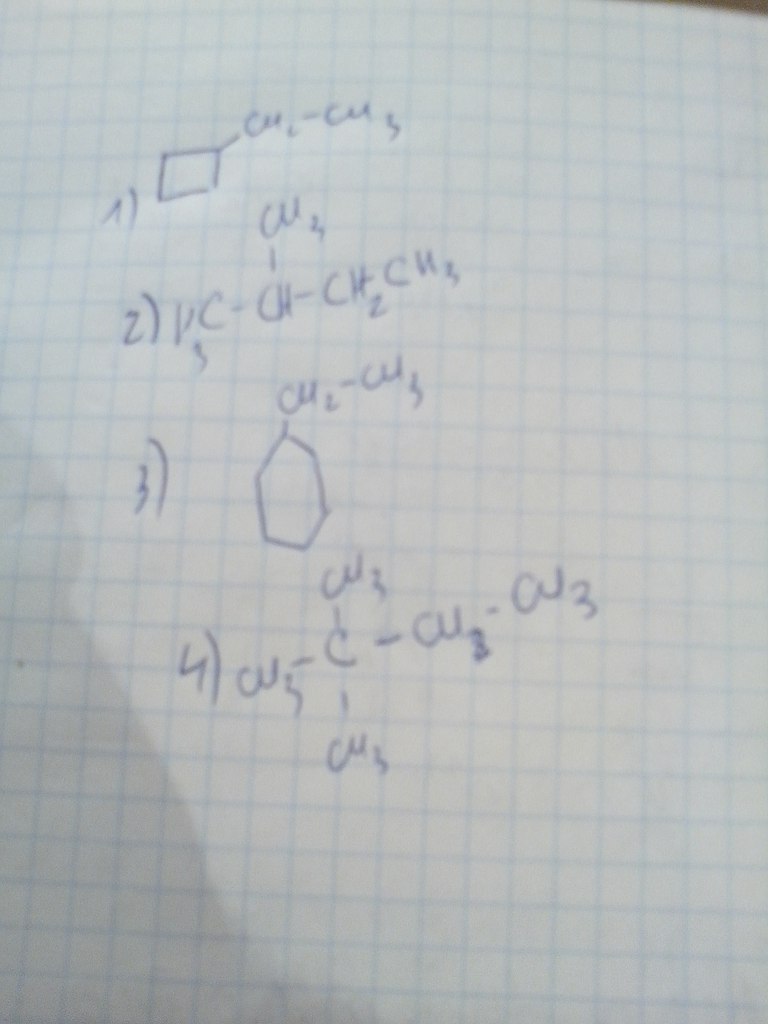 CH2-CH3
1)
CH3
2) H3C-CH-CH2CH3
CH2-CH3
3)
CH3
4) CH3-C-CH2-CH3
CH3